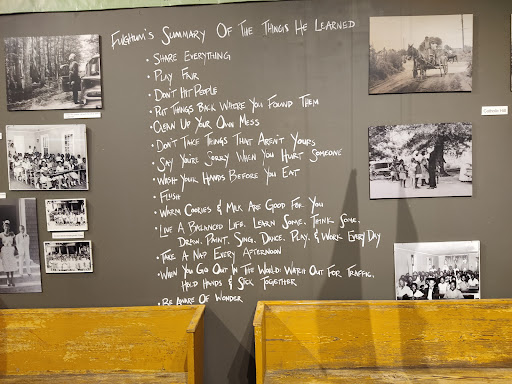 Fulghum's Summary Of The Things He Learned
• Share Everything
• Play Fair
• Don't Hit People
• Put Things Back Where You Found Them
• Clean Up Your Own Mess
• Don't Take Things That Aren't Yours
• Say You're Sorry When You Hurt Someone
• Wash Your Hands Before You Eat
• Flush
• Warm Cookies & Milk Are Good For You
• Live A Balanced Life. Learn Some. Think Some.
Draw. Paint. Sing. Dance. Play. & Work Every Day
• Take A Nap Every Afternoon
• When You Go Out In The World: Watch Out For Traffic.
Hold Hands & Stick Together
• Be Aware Of Wonder